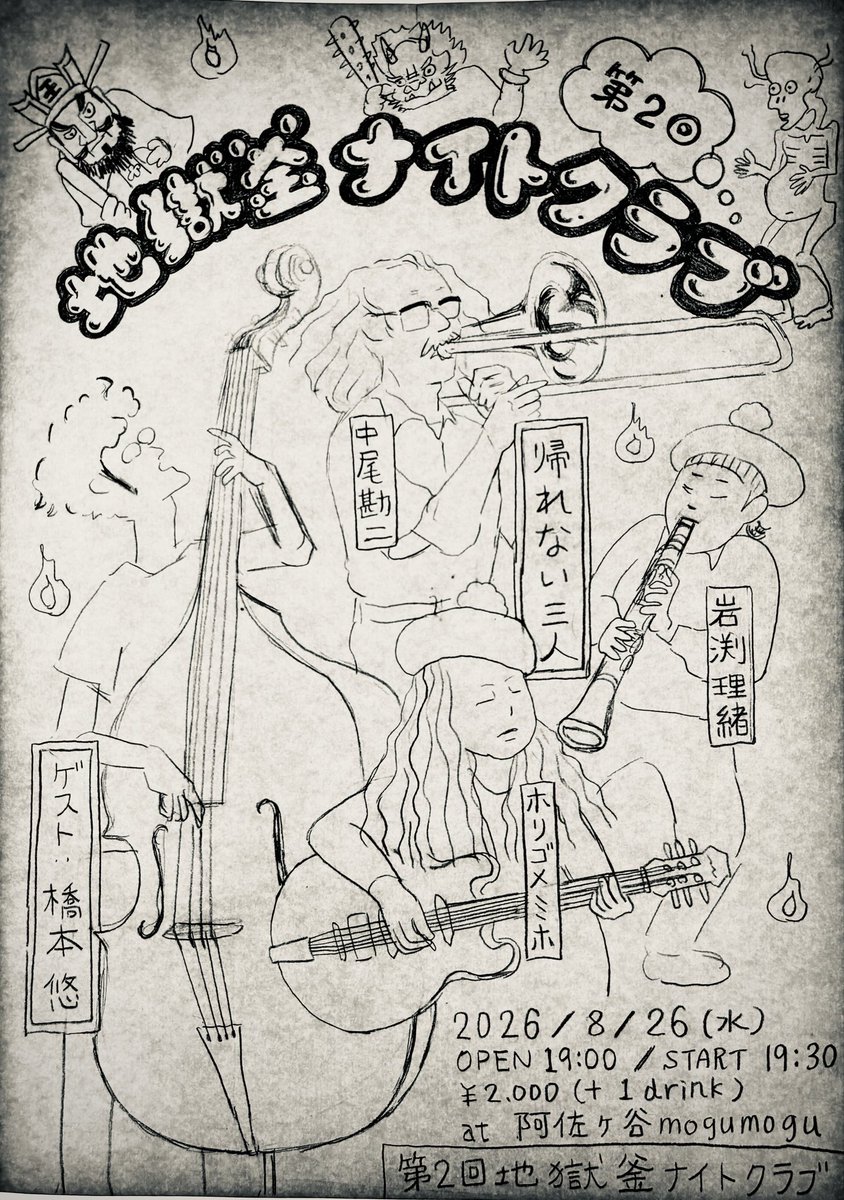 第2回
地獄釜ナイトクラブ
中尾勘二
帰れない三人
岩渕理緒
ホリゴメミホ
ゲスト:橋本悠
2026/8/26(水)
OPEN 19:00 / START 19:30
¥2.000 (+ 1 drink)
at 阿佐ヶ谷mogumogu
第2回地獄釜ナイトクラブ